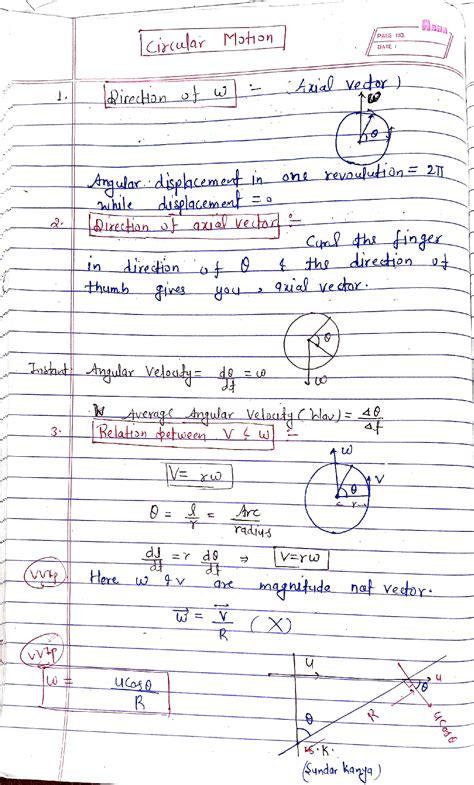 PAGE NO.
DATE :
Circular Motion
1. Direction of ω :- (Axial vector)
ω
θ
Angular displacement in one revoulution = 2π
while displacement = 0
2. Direction of axial vector :-
Curl the finger
in direction of θ & the direction of
thumb gives you, axial vector.
θ
Instant Angular Velocity = dθ/dt = ω
ω
Average Angular Velocity (Wav) = Δθ/Δt
3. Relation between V & ω :-
ω
V = rω
V
θ
r
θ = l/r = Arc/radius
dl/dt = r dθ/dt ⇒ V = rω
VVIp Here ω & v are magnitude not vector.
ω⃗ = V⃗/R (X)
VVIp
ω = ucosθ/R
u
u
θ
R
ucosθ
θ
S.K.
(Sundar Kanya)